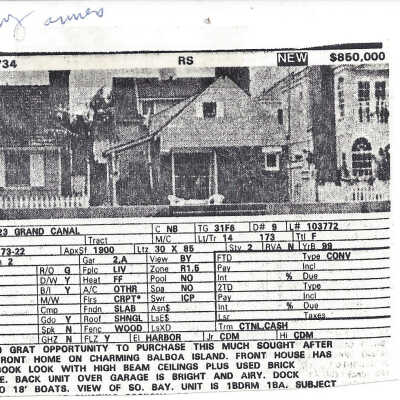 734 RS NEW $850,000
23 GRAND CANAL C NB TG 31F6 D# 9 L# 103772
Tract M/C Lt/Tr 14 173 Ttl F
73-22 ApxSf 1900 Ltz 30 X 85 Sty 2 RVA N YrB 99
2 Gar 2,A View BY FTD Type CONV
R/O G Fplc LIV Zone R1.5 Pay Incl
D/W Y Heat FF Pool NO Int % Due
B/I Y A/C OTHR Spa NO 2TD Type
M/W Flrs CRPT* Swr ICP Pay Incl
Cmp Fndn SLAB Asn$ Int % Due
Gdo Y Roof SHNGL LsE$ Lsr Taxes
Spk N Fenc WOOD LsXD Trm CTNL,CASH
GHZ N FLZ Y El HARBOR Jr CDM Hi CDM
GRAT OPPORTUNITY TO PURCHASE THIS MUCH SOUGHT AFTER
FRONT HOME ON CHARMING BALBOA ISLAND. FRONT HOUSE HAS
BOOK LOOK WITH HIGH BEAM CEILINGS PLUS USED BRICK
E. BACK UNIT OVER GARAGE IS BRIGHT AND AIRY. DOCK
O 18' BOATS. VIEW OF SO. BAY. UNIT IS 1BDRM 1BA. SUBJECT